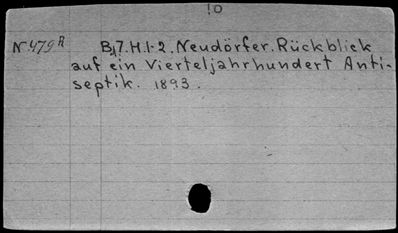 10
N 479 R B,7.H.1-2. Neudörfer. Rückblick
auf ein Vierteljahrhundert Anti-
septik. 1893.